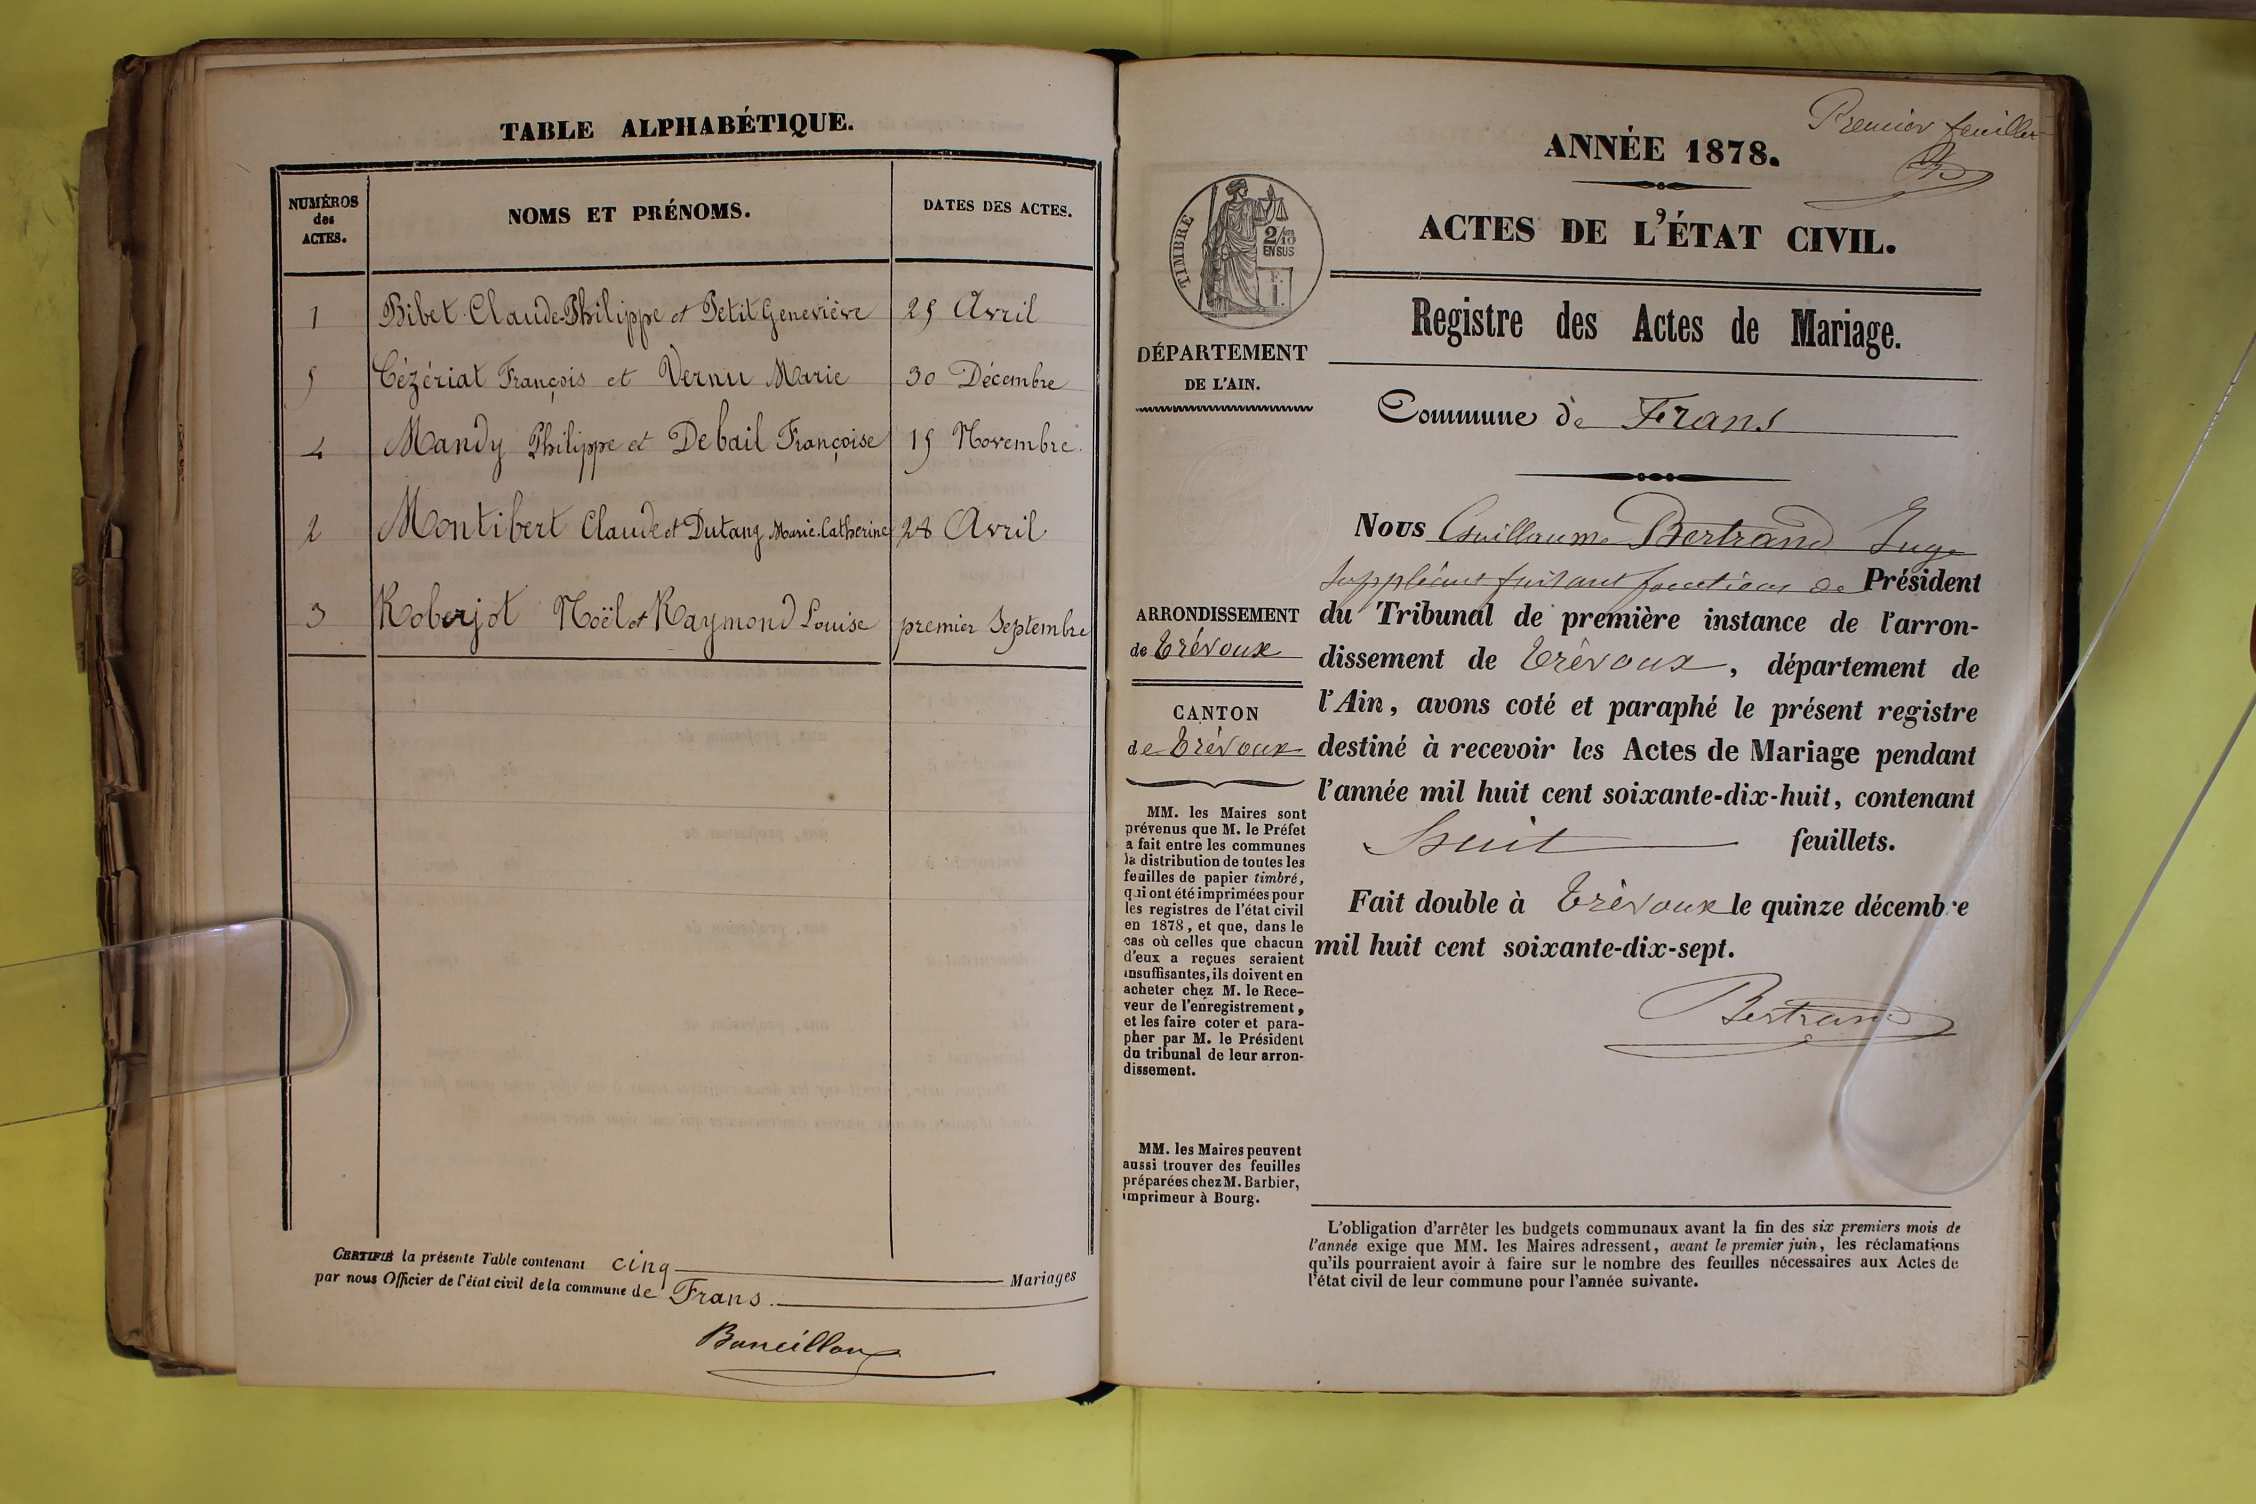 TABLE ALPHABÉTIQUE.
NUMÉROS
des
ACTES.
NOMS ET PRÉNOMS.
DATES DES ACTES.
1 Bibet Claude-Philippe et Petit Geneviève 25 Avril
5 Cézériat François et Vernu Marie 30 Décembre
4 Mandy Philippe et Debail Françoise 15 Novembre.
2 Montibert Claude et Dutang Marie-Catherine 28 Avril
3 Roberjot Noël et Raymond Louise premier Septembre
CERTIFIÉ la présente Table contenant cinq Mariages
par nous Officier de l'état civil de la commune de Frans.
Premier feuillet
ANNÉE 1878.
ACTES DE L'ÉTAT CIVIL.
TIMBRE
2/10
EN SUS
Registre des Actes de Mariage.
DÉPARTEMENT
DE L'AIN.
Commune de Frans
Nous Guillaume Bertrand Juge
suppléant faisant fonctions de Président
du Tribunal de première instance de l'arron-
dissement de Trévoux, département de
l'Ain, avons coté et paraphé le présent registre
destiné à recevoir les Actes de Mariage pendant
l'année mil huit cent soixante-dix-huit, contenant
huit feuillets.
Fait double à Trévoux le quinze décembre
mil huit cent soixante-dix-sept.
Bertrand
ARRONDISSEMENT
de Trévoux
CANTON
de Trévoux
MM. les Maires sont
prévenus que M. le Préfet
a fait entre les communes
la distribution de toutes les
feuilles de papier timbré,
qui ont été imprimées pour
les registres de l'état civil
en 1878, et que, dans le
cas où celles que chacun
d'eux a reçues seraient
insuffisantes, ils doivent en
acheter chez M. le Rece-
veur de l'enregistrement,
et les faire coter et para-
pher par M. le Président
du tribunal de leur arron-
dissement.
MM. les Maires peuvent
aussi trouver des feuilles
préparées chez M. Barbier,
imprimeur à Bourg.
L'obligation d'arrêter les budgets communaux avant la fin des six premiers mois de
l'année exige que MM. les Maires adressent, avant le premier juin, les réclamations
qu'ils pourraient avoir à faire sur le nombre des feuilles nécessaires aux Actes de
l'état civil de leur commune pour l'année suivante.